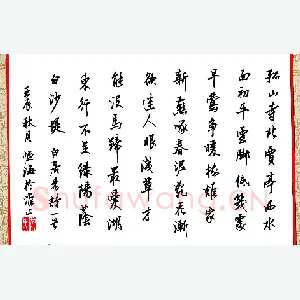 孤山寺北賈亭西水
面初平雲脚低幾處
早鶯争暖樹誰家
新燕啄春泥亂花漸
欲迷人眼淺草才
能没馬蹄最愛湖
東行不足绿楊蔭
白沙堤 白居易詩一首
壬辰秋月